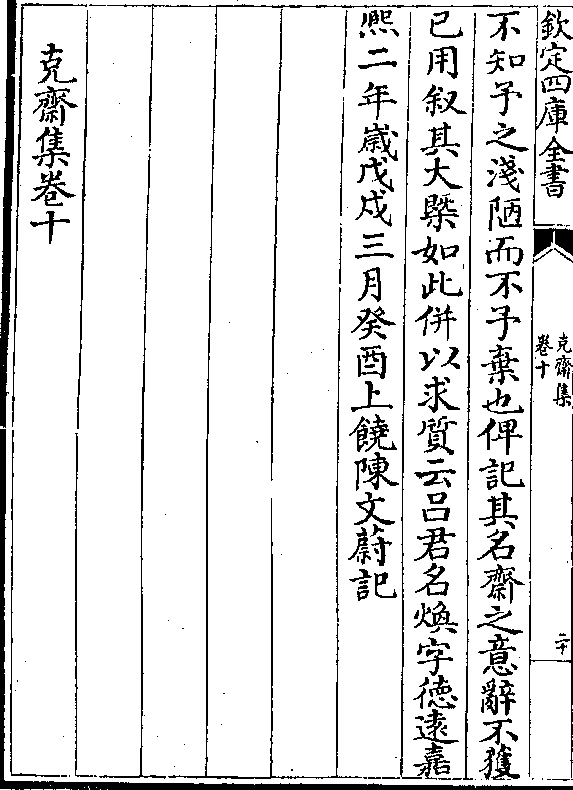 欽定四庫全書
克齋集
卷十
二十
不知予之淺陋而不予棄也俾記其名齋之意辭不獲
已用叙其大槩如此併以求質云吕君名煥字徳逺嘉
熈二年歳戊戍三月癸酉上饒陳文蔚記
克齋集卷十